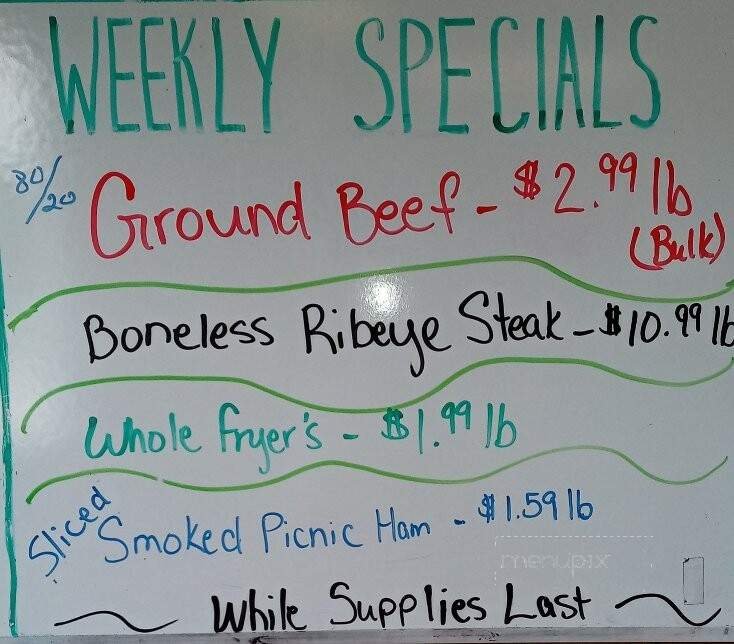 WEEKLY SPECIALS
80/20 Ground Beef - $2.99 lb
(Bulk)
Boneless Ribeye Steak - $10.99 lb
Whole Fryer's - $1.99 lb
Sliced Smoked Picnic Ham - $1.59 lb
menupix
While Supplies Last